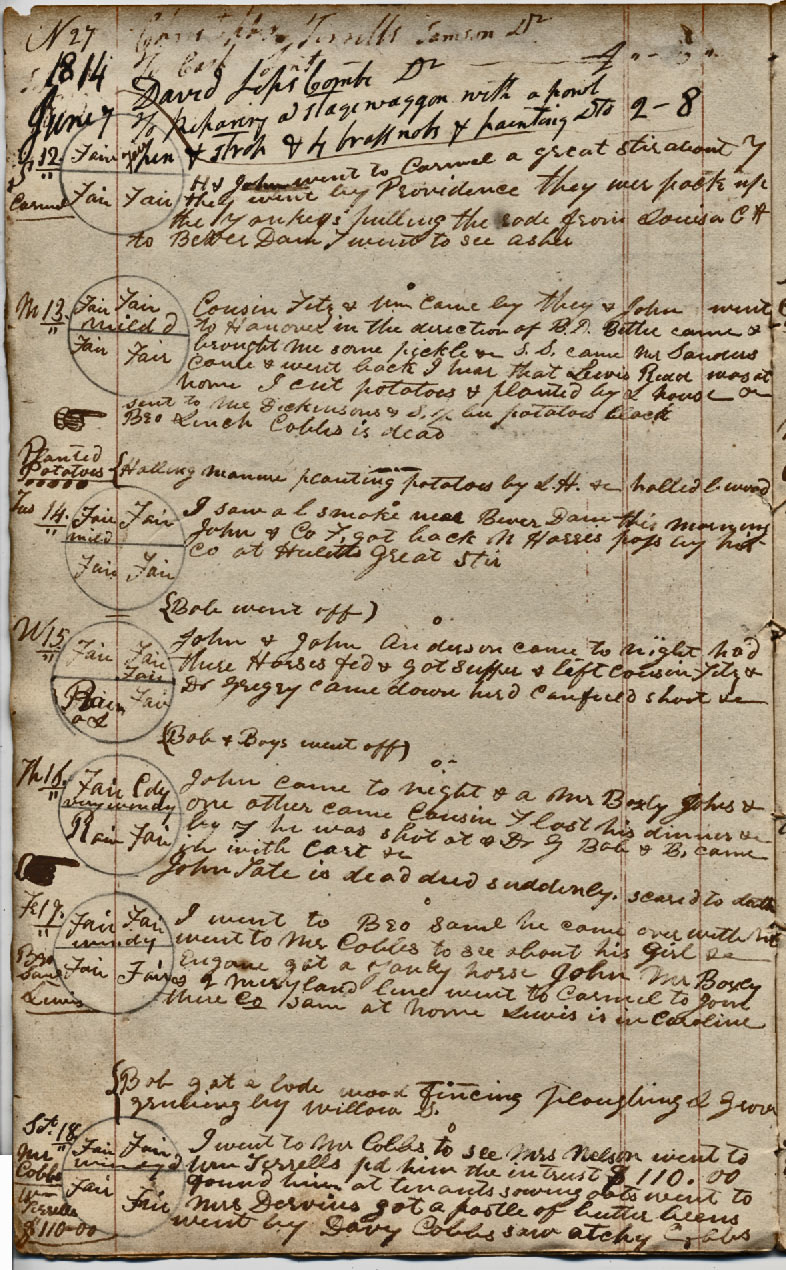 N 27 Terrells Samson Dr
1814 David Lipscombe Dr
June 7 To repairing a stage waggon with a powl
& strop & 4 brass nobs & painting Do 2-8
S 12. Fair Fair Fair
& Carmel
H & John went to Carmel a great stir about y
they went by Providence they wer pack up
the Yankeys pulling the rode from Louisa C H
to Bever Dam I went to see asher
M 13. Fair Fair mild d Fair Fair
Cousin Fitz & Wm came by they & John went
to Hanover in the direction of B. D. Bettie came &
brought me some pickle &c S. S. came Mr Sanders
came & went back I hear that Lewis was at
home I cut potatoes & planted by L house
sent to Mr Dickinsons & potatoes back
Bro Linch Cobbs is dead
Planted Potatoes
{Halling manure planting potatoes by L.H. &c halled l. wood
Tus 14. Fair Fair mild Fair Fair
I saw a l smoke near Bever Dam this morning
John & Co F. got back M Harres pass by his
co at Huletts Great Stir
{Bob went off)
W 15 Fair Fair Fair Rain Fair
John & John Anderson came to night had
there Horses fed & got supper & left Cousin Fitz &
Dr Gregry came down herd canfield shoot &c
(Bob & Boys went off)
Th 16. Fair Cdy very windy Rain Fair
John came to night & a Mr Boxly Johs &
one other came Cousin F lost his dinner &c
by y he was shot at & Dr G Bob & B. came
with cart &c
John Tate is dead died suddenly. scared to death
Fr 17. Fair Fair windy Fair Fair
Bro Saml Lewis
I went to Bro Saml he came over with
went to Mr Cobbs to see about his girl &c
Eugane got a yanky horse John Mr Boxly
& y Meryland line went to Carmel to Join
there Co Sam at home Lewis is in Caroline
{Bob got a lode wood Fincing Ploughing &
grubing by willow S.
St. 18 Fair Fair windy d Fair Fair
Mr Cobbs
Wm Terrells
$110-00
I went to Mr Cobbs to see Mrs Nelson went to
Wm Terrells pd him the intrust $110.00
found him at tenants sowing oats went to
Mrs Dervins got a of butter beens
went by Davy Cobbs saw Cobbs